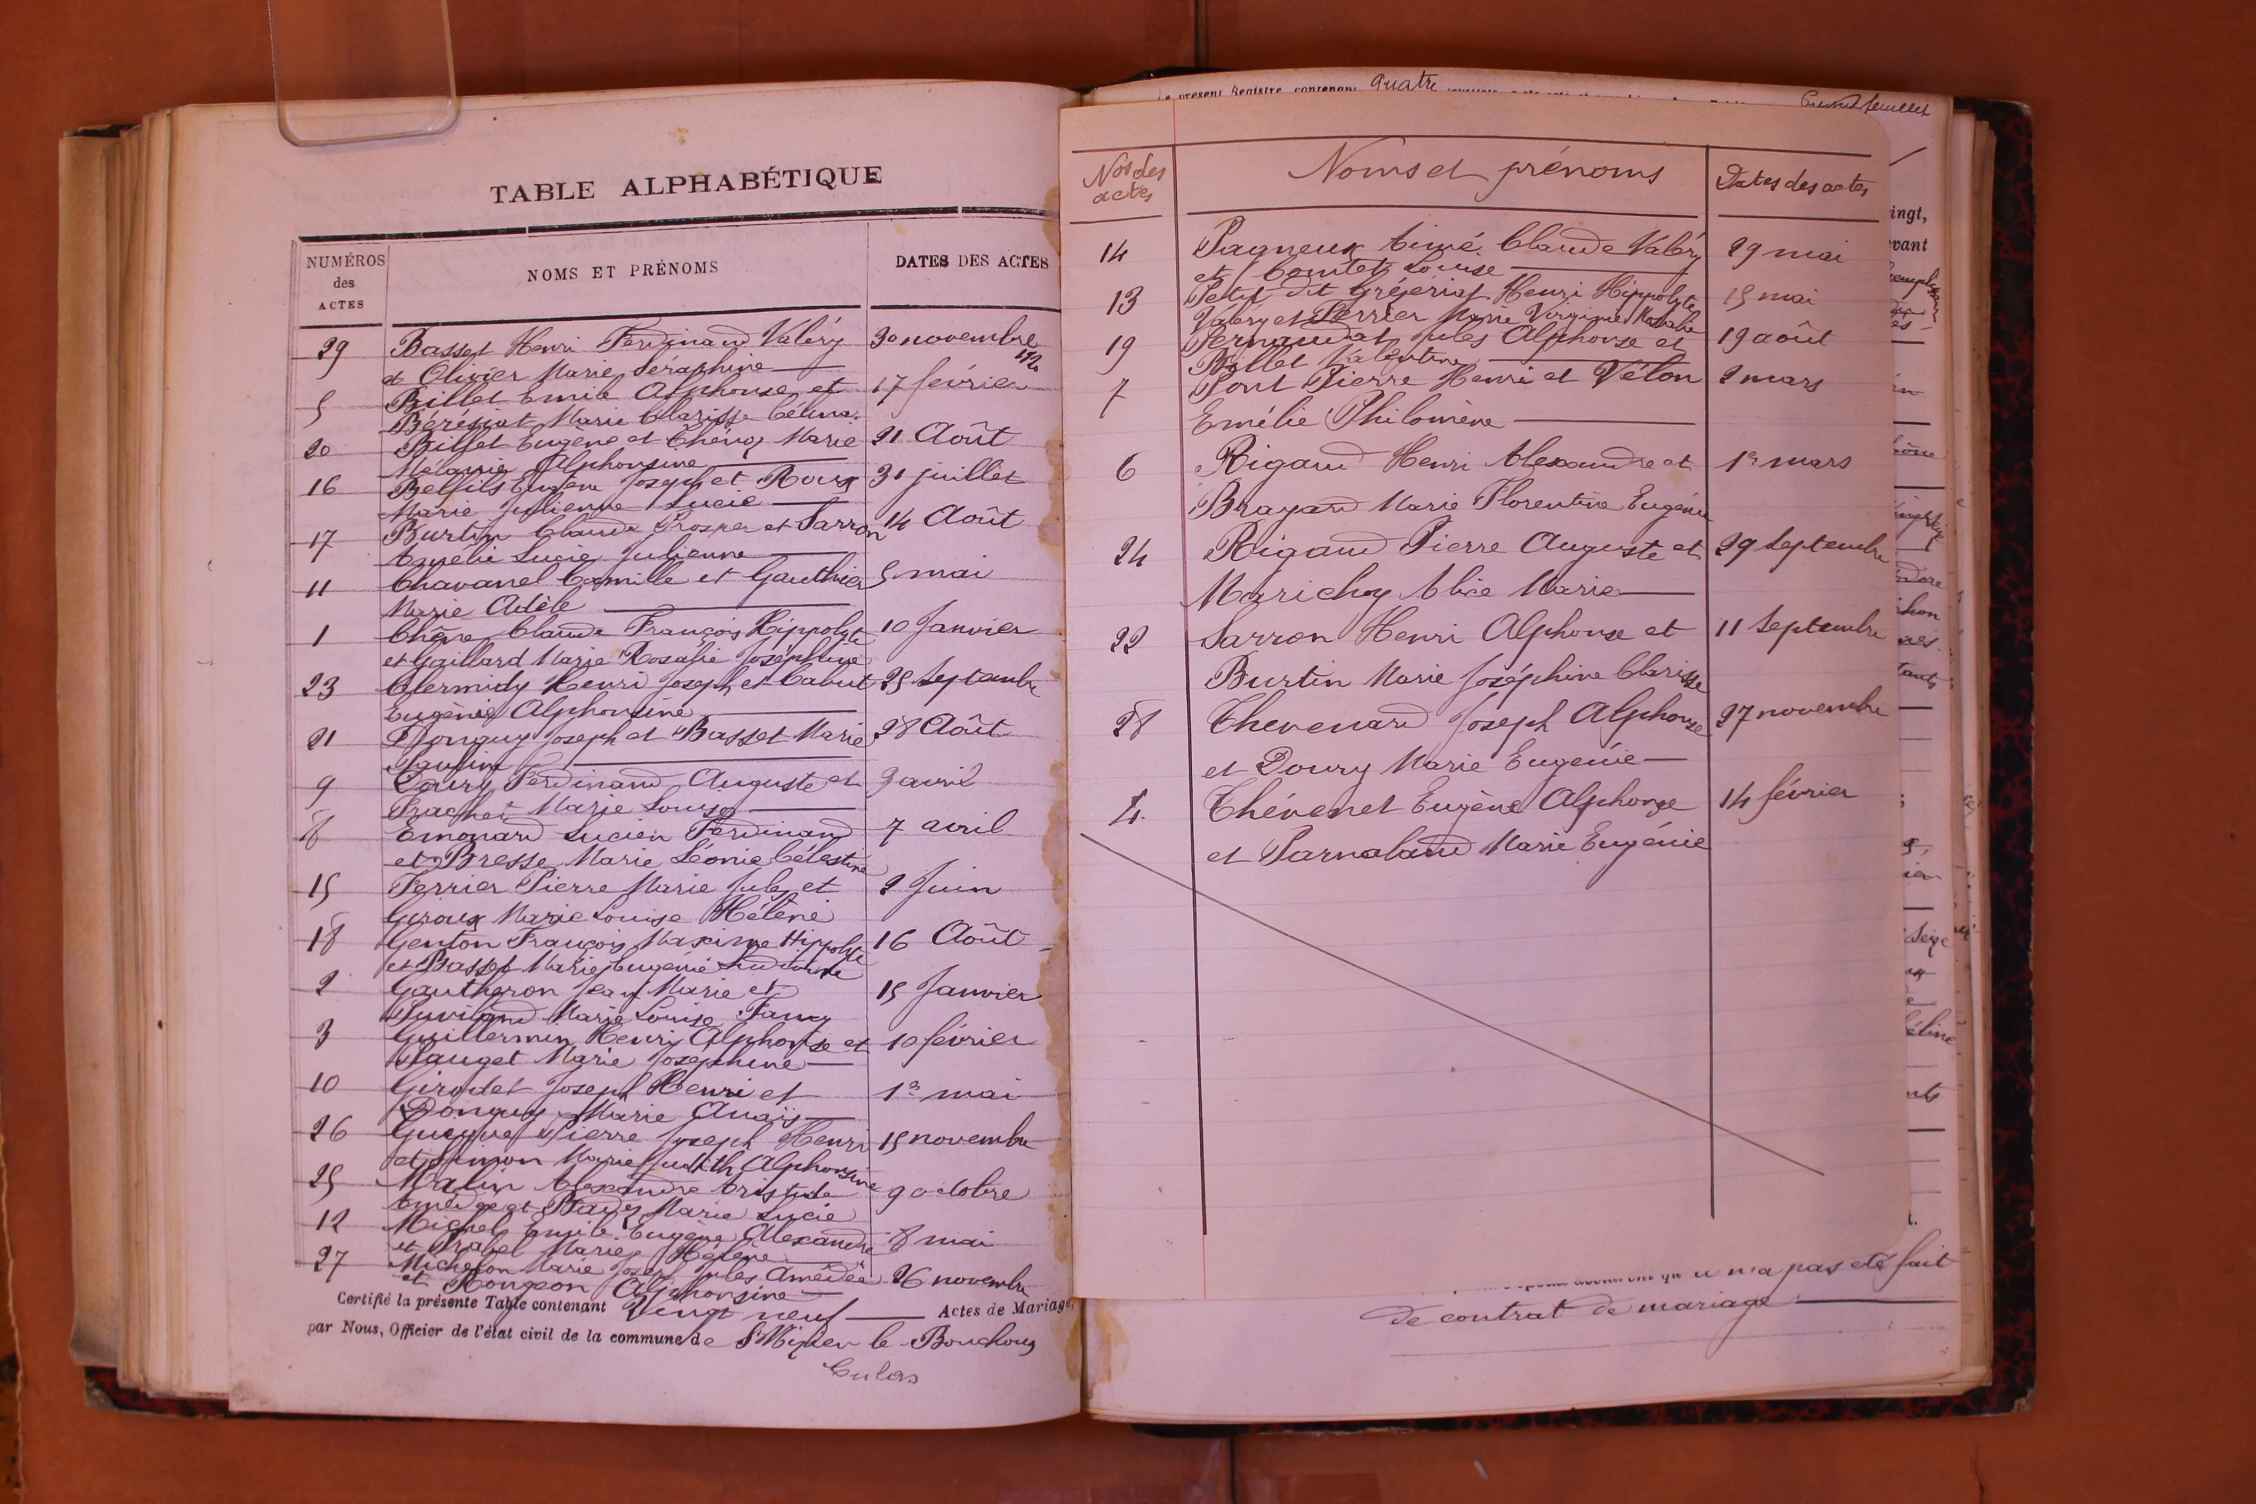 TABLE ALPHABÉTIQUE
NUMÉROS
des
ACTES
NOMS ET PRÉNOMS
DATES DES ACTES
29 Basset Henri Ferdinand Valéry 30 novembre
et Olivier Marie Séraphine 1920
5 Billet Emile Alphonse et 17 février
Béréziat Marie Clarisse Célina
20 Billet Eugène et Chêne Marie 21 Août
Mélanie Alphonsine
16 Belfils Eugène Joseph et Roux 31 juillet
Marie Julienne Lucie
17 Burtin Claude Prosper et Sarron 14 Août
Amélie Lucie Julienne
11 Chavanel Camille et Gauthier 5 mai
Marie Adèle
1 Chêne Claude François Hippolyte 10 Janvier
et Gaillard Marie Rosalie Joséphine
23 Clermidy Henri Joseph et Cabut 25 Septembre
Eugénie Alphonsine
21 Donguy Joseph et Basset Marie 28 Août
Pauline
9 Doury Ferdinand Auguste et 3 avril
Frachet Marie Louise
8 Emonard Lucien Ferdinand 7 avril
et Bresse Marie Léonie Célestine
15 Ferrier Pierre Marie Jules et 2 Juin
Giroux Marie Louise Hélène
18 Genton François Maxime Hippolyte 16 Août
et Basset Marie Eugénie
2 Gautheron Jean Marie et 15 Janvier
Marie Louise Fanny
3 Guillermin Henri Alphonse et 10 février
Pauget Marie Joséphine
10 Girodet Joseph Henri et 1er mai
Donguy Marie Anaïs
26 Pierre Joseph Henri 15 novembre
et Simon Marie Judith Alphonsine
25 Matin Alexandre Aristide 9 octobre
Amédée et Marie Lucie
12 Michel Emile Eugène Alexandre 8 mai
et Marie Hélène
27 Michelon Marie Joseph Jules Amédée 26 novembre
et Rougeon Alphonsine
Certifié la présente Table contenant Vingt neuf Actes de Mariage,
par Nous, Officier de l'état civil de la commune de St Nizier le Bouchoux
Culas
Le présent Registre contenant quatre
feuillet
Nos des
actes
Noms et prénoms
Dates des actes
14 Pagneux Aimé Claude Valéry 29 mai
et Comtet Louise
13 Petit dit Gréjeriat Henri Hippolyte 15 mai
Valéry et Perrier Marie Virginie Natalie
19 Pernaudat Jules Alphonse et 19 août
Billet Valentine
7 Pont Pierre Henri et Vélon 2 mars
Emélie Philomène
6 Rigaud Henri Alexandre et 1er mars
Brayard Marie Florentine Eugénie
24 Rigaud Pierre Auguste et 29 Septembre
Marichoy Alice Marie
22 Sarron Henri Alphonse et 11 Septembre
Burtin Marie Joséphine Clarisse
28 Thevenard Joseph Alphonse 27 novembre
et Doury Marie Eugénie
4 Thévenet Eugène Alphonse 14 février
et Parnaland Marie Eugénie
n'a pas été fait
de contrat de mariage